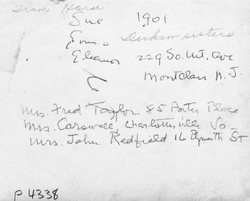 Sue 1901
Emma Dickson sisters
Eleanor 229 So. Mt. Ave
Montclair N.J.
Mrs. Fred Taylor 85 Porter Place
Mrs. Carswell, Charlottesville Va.
Mrs. John Redfield 16 Plymouth St
P 4338